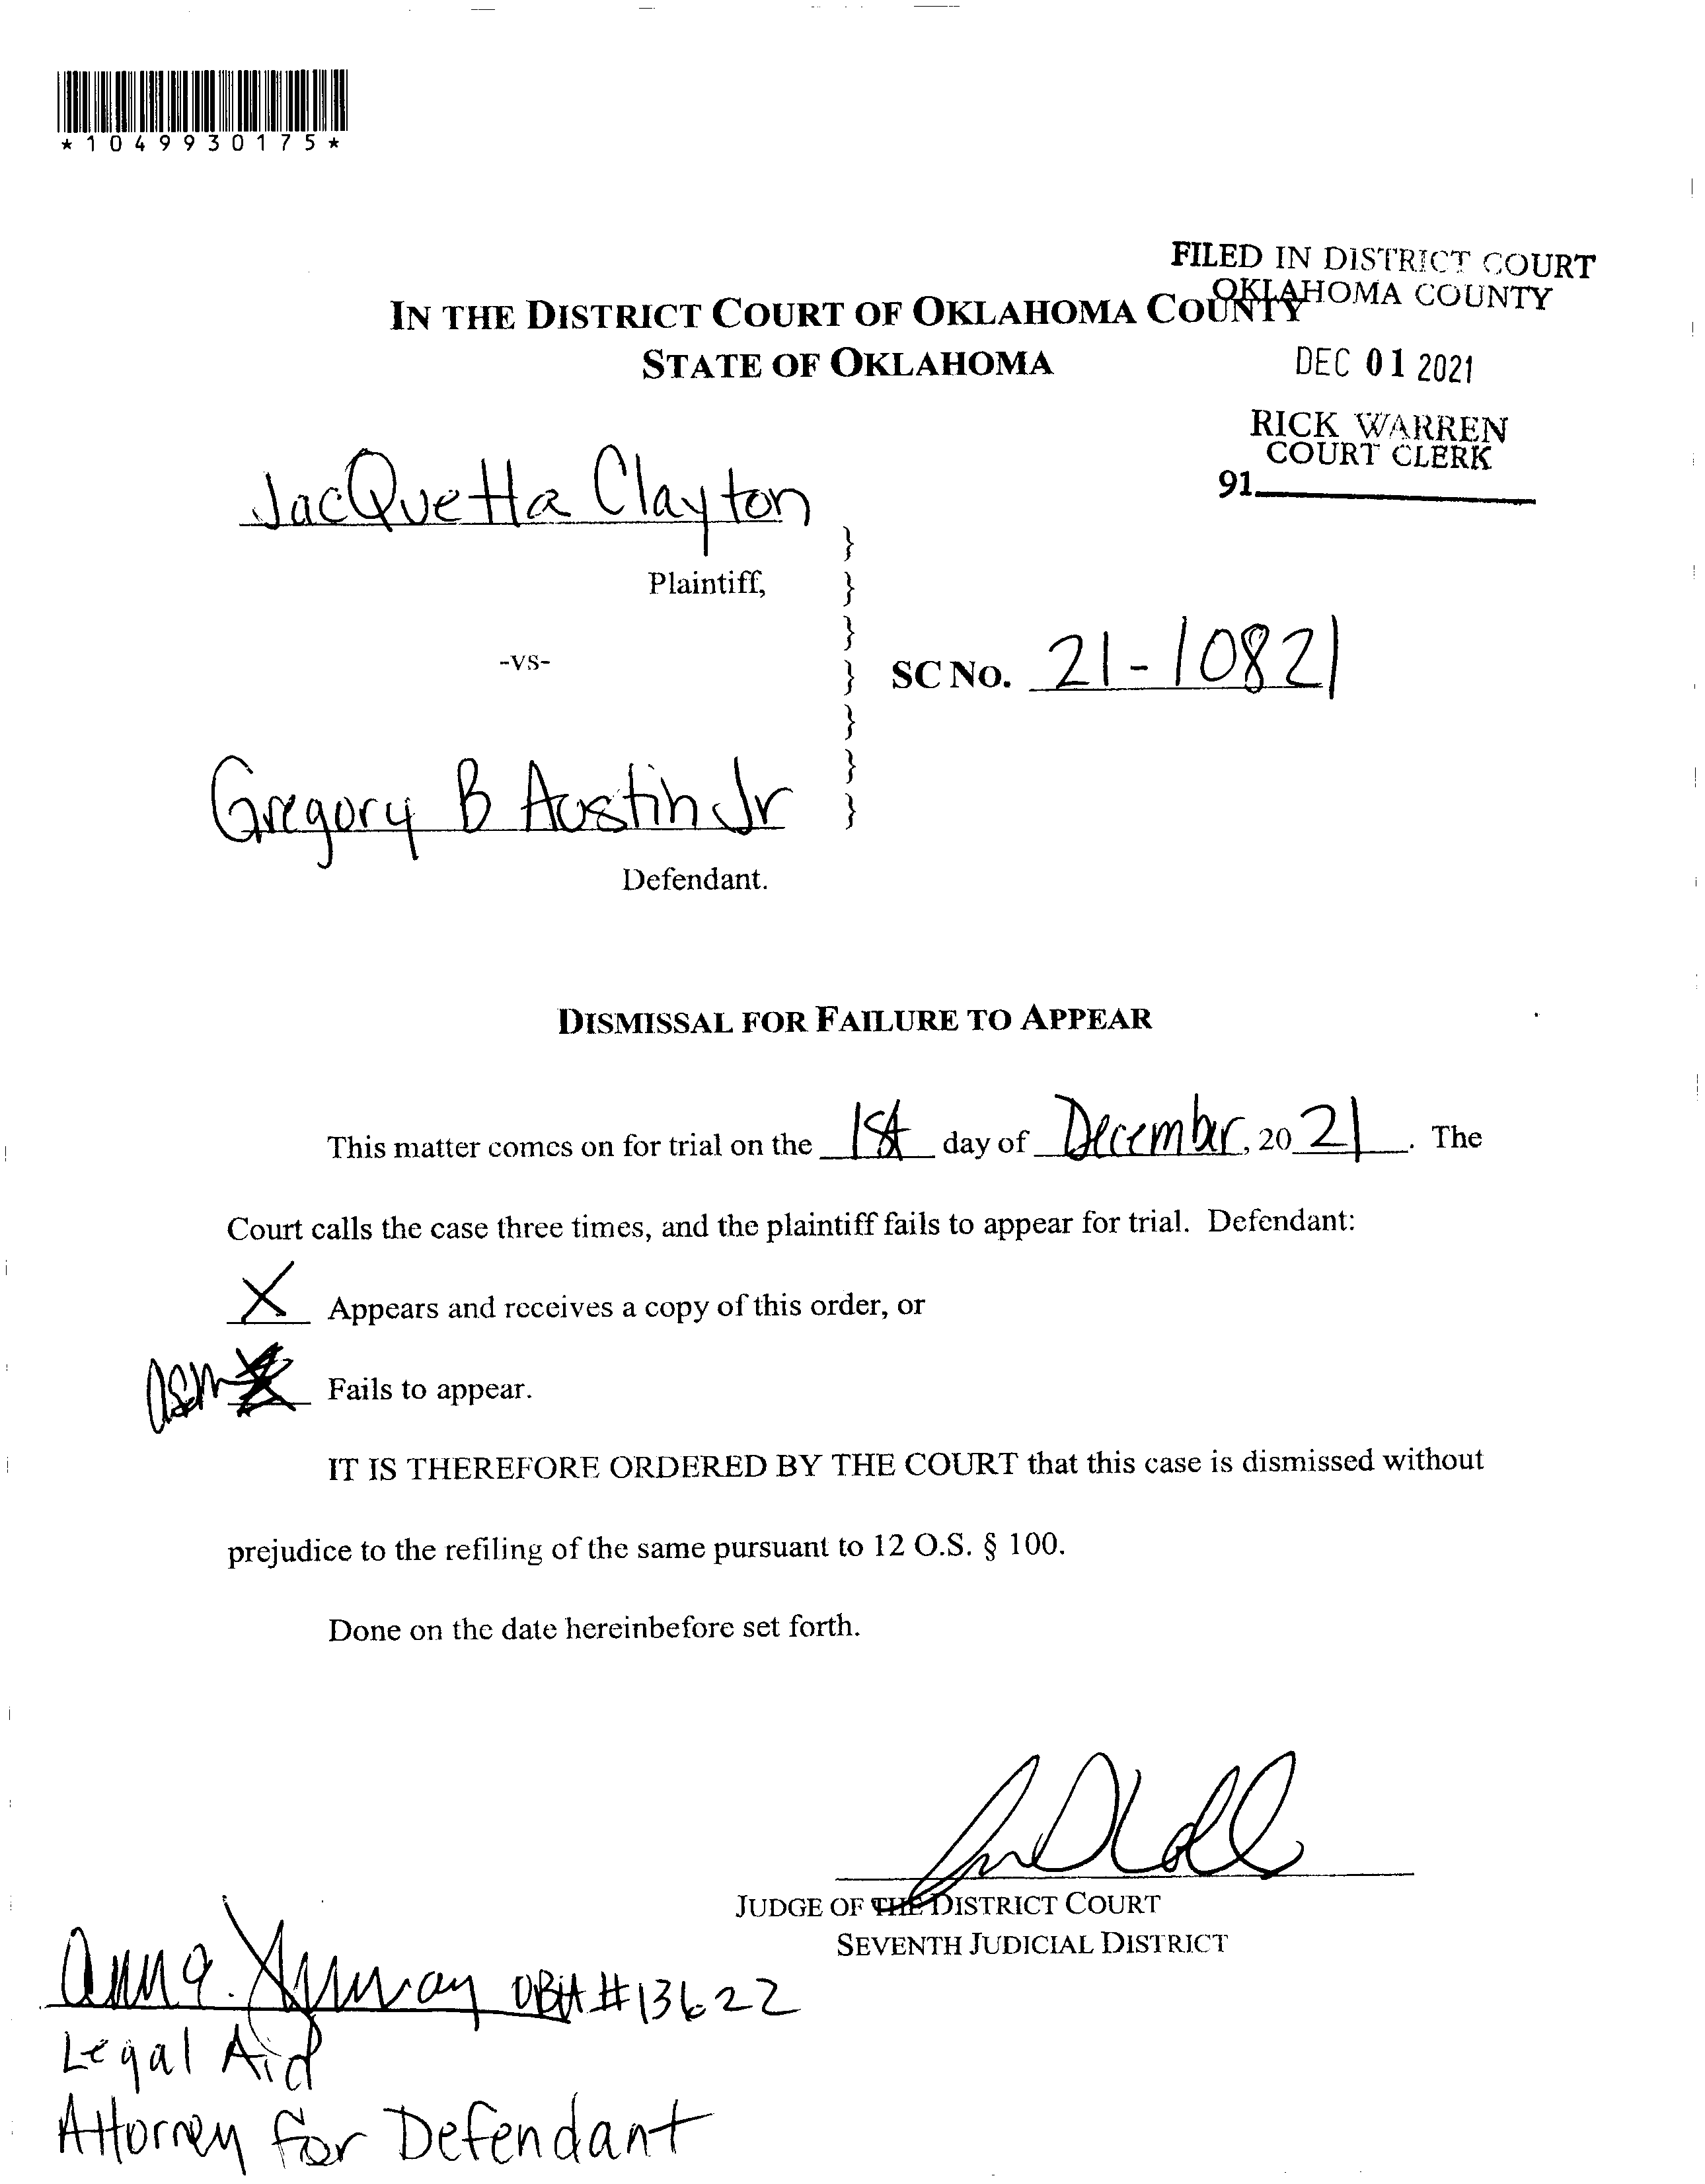 *1049930175*
FILED IN DISTRICT COURT
OKLAHOMA COUNTY
IN THE DISTRICT COURT OF OKLAHOMA COUNTY
STATE OF OKLAHOMA
DEC 01 2021
RICK WARREN
COURT CLERK
91
JacQuetta Clayton
Plaintiff,
-vs-
SC No. 21-10821
Gregory B Austin Jr
Defendant.
}
}
}
}
}
}
}
DISMISSAL FOR FAILURE TO APPEAR
This matter comes on for trial on the 1st day of December, 20 21. The
Court calls the case three times, and the plaintiff fails to appear for trial. Defendant:
X Appears and receives a copy of this order, or
Fails to appear.
IT IS THEREFORE ORDERED BY THE COURT that this case is dismissed without
prejudice to the refiling of the same pursuant to 12 O.S. § 100.
Done on the date hereinbefore set forth.
JUDGE OF THE DISTRICT COURT
SEVENTH JUDICIAL DISTRICT
OBA #13622
Legal Aid
Attorney for Defendant